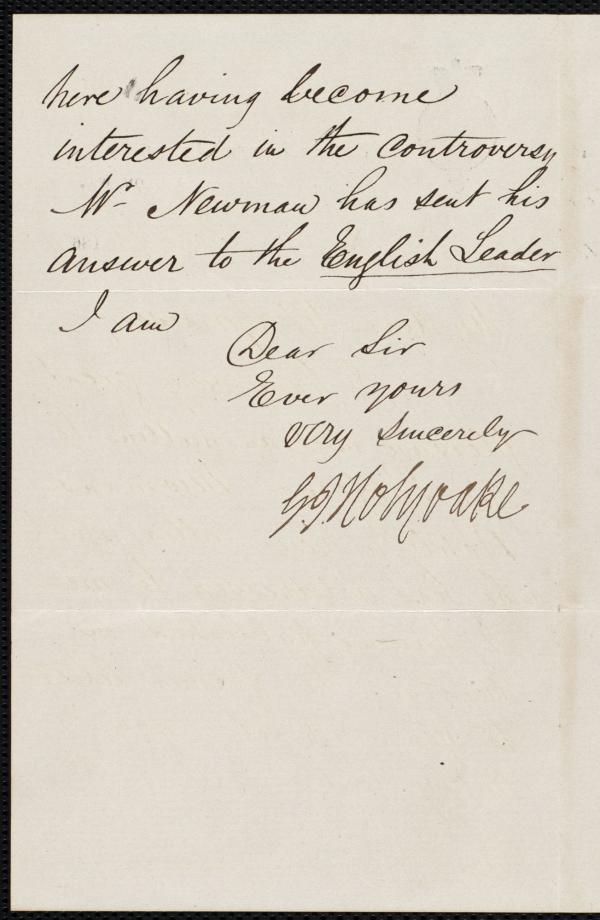 here having become
interested in the controversy
Mr Newman has sent his
answer to the English Leader
I am
Dear Sir
Ever yours
very sincerely
G.J. Holyoake